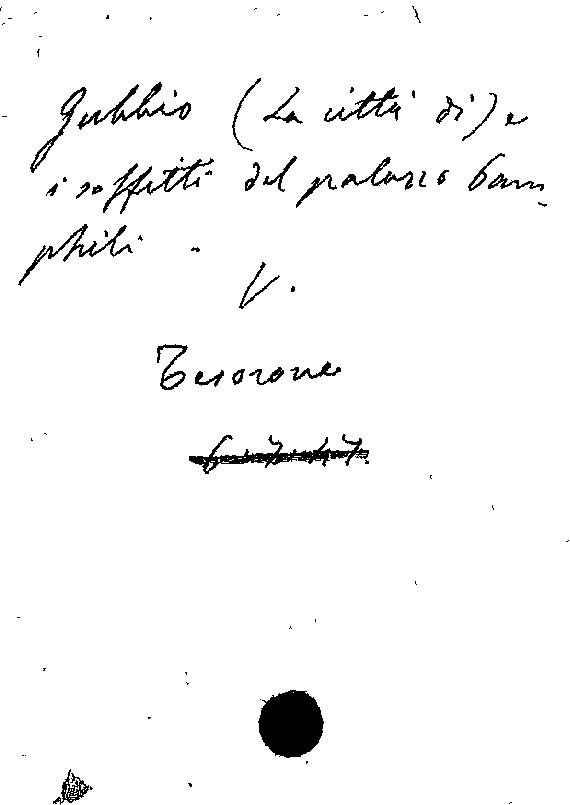 Gubbio (La città di) e
i soffitti del palazzo Pam
phili.
V.
Tesorone
6.7.47.